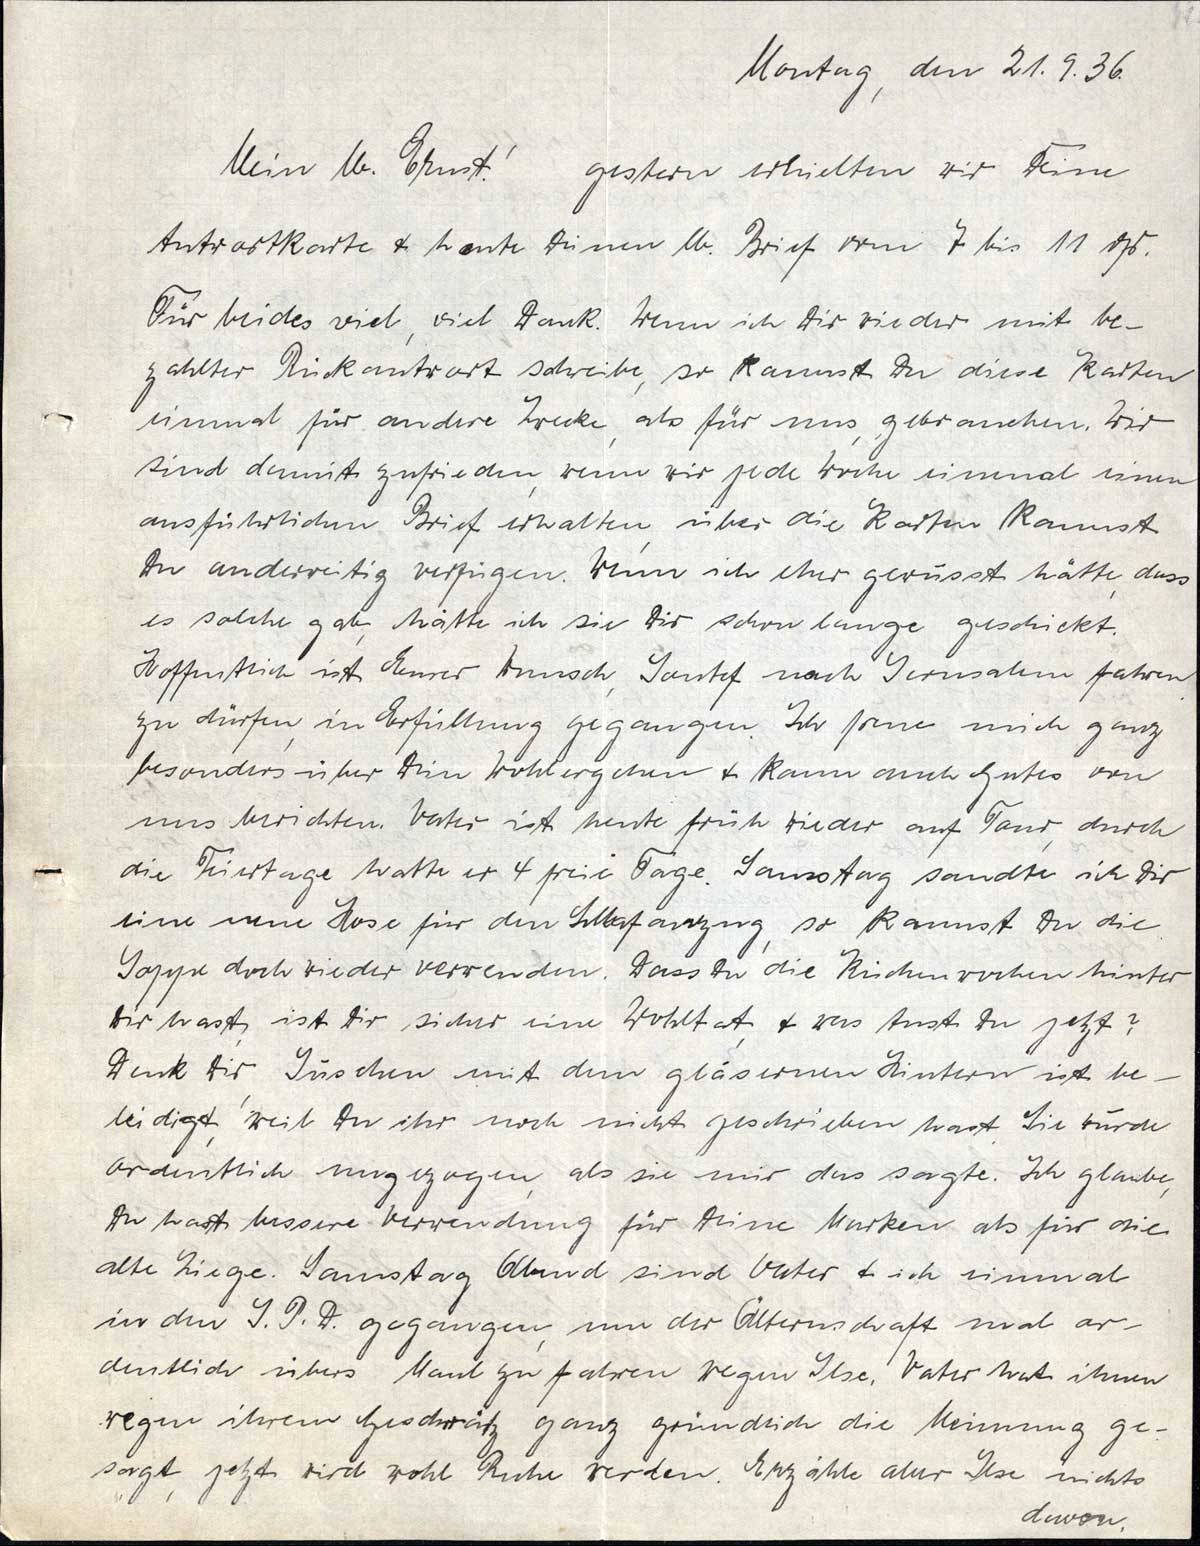 Montag, den 21.9.36.
Mein lb. Ernst! gestern erhielten wir Deine
Antwortkarte & heute Deinen lb. Brief vom 7 bis 11 ds.
Für beides viel, viel Dank. Wenn ich Dir wieder mit be-
zahlter Rückantwort schreibe, so kannst Du diese Karten
einmal für andere Zwecke, als für uns, gebrauchen. Wir
sind damit zufrieden, wenn wir jede Woche einmal einen
ausführlichen Brief erhalten, über die Karten kannst
Du anderweitig verfügen. Wenn ich eher gewusst hätte, dass
es solche gab, hätte ich sie Dir schon lange geschickt.
Hoffentlich ist Eurer Wunsch, Jontef nach Jerusalem fahren
zu dürfen, in Erfüllung gegangen. Ich freue mich ganz
besonders über Dein Wohlergehen & kann auch Gutes von
uns berichten. Vater ist heute früh wieder auf Tour, durch
die Feiertage hatte er 4 freie Tage. Samstag sandte ich Dir
eine neue Hose für den Schlafanzug, so kannst Du die
Joppe doch wieder verwenden. Dass Du die Küchenwochen hinter
Dir hast, ist Dir sicher eine Wohltat, & was tust Du jetzt?
Denk Dir, Süschen mit dem gläsernen Hintern ist be-
leidigt, weil Du ihr noch nicht geschrieben hast. Sie wurde
ordentlich ungezogen, als sie mir das sagte. Ich glaube,
Du hast bessere Verwendung für Deine Marken als für die
alte Ziege. Samstag Abend sind Vater & ich einmal
in den J.P.D. gegangen, um der Älternschaft mal or-
dentlich übers Maul zu fahren wegen Ilse. Vater hat ihnen
wegen ihrem Geschwätz ganz gründlich die Meinung ge-
sagt, jetzt wird wohl Ruhe werden. Erzähle aber Ilse nichts
davon.